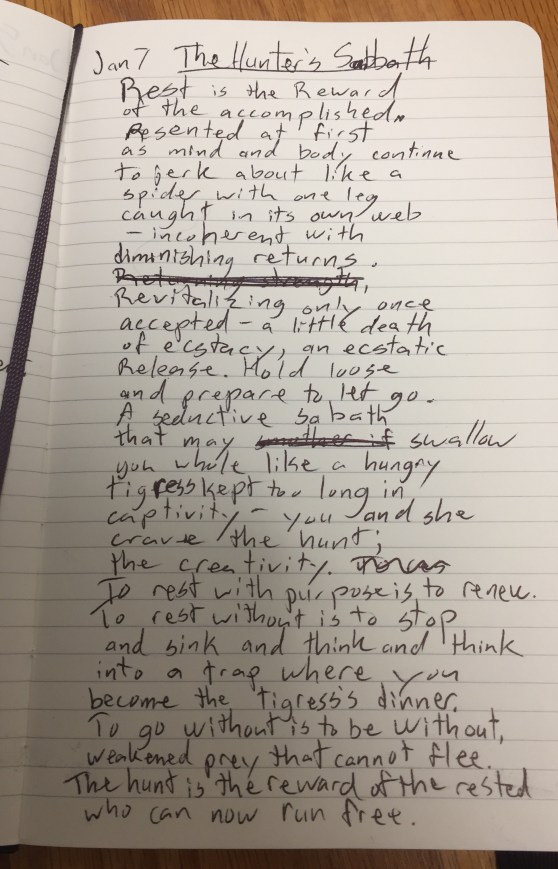 Jan 7 The Hunter's Sabbath
Rest is the Reward
of the accomplished.
Resented at first
as mind and body continue
to jerk about like a
spider with one leg
caught in its own web
– incoherent with
diminishing returns.
Returning strength,
Revitalizing only once
accepted – a little death
of ecstacy, an ecstatic
Release. Hold loose
and prepare to let go.
A seductive sabath
that may smother if swallow
you whole like a hungry
tigress kept too long in
captivity – you and she
crave the hunt;
the creativity.
To rest with purpose is to renew.
To rest without is to stop
and sink and think and think
into a trap where you
become the tigress's dinner.
To go without is to be without,
weakened prey that cannot flee.
The hunt is the reward of the rested
who can now run free.